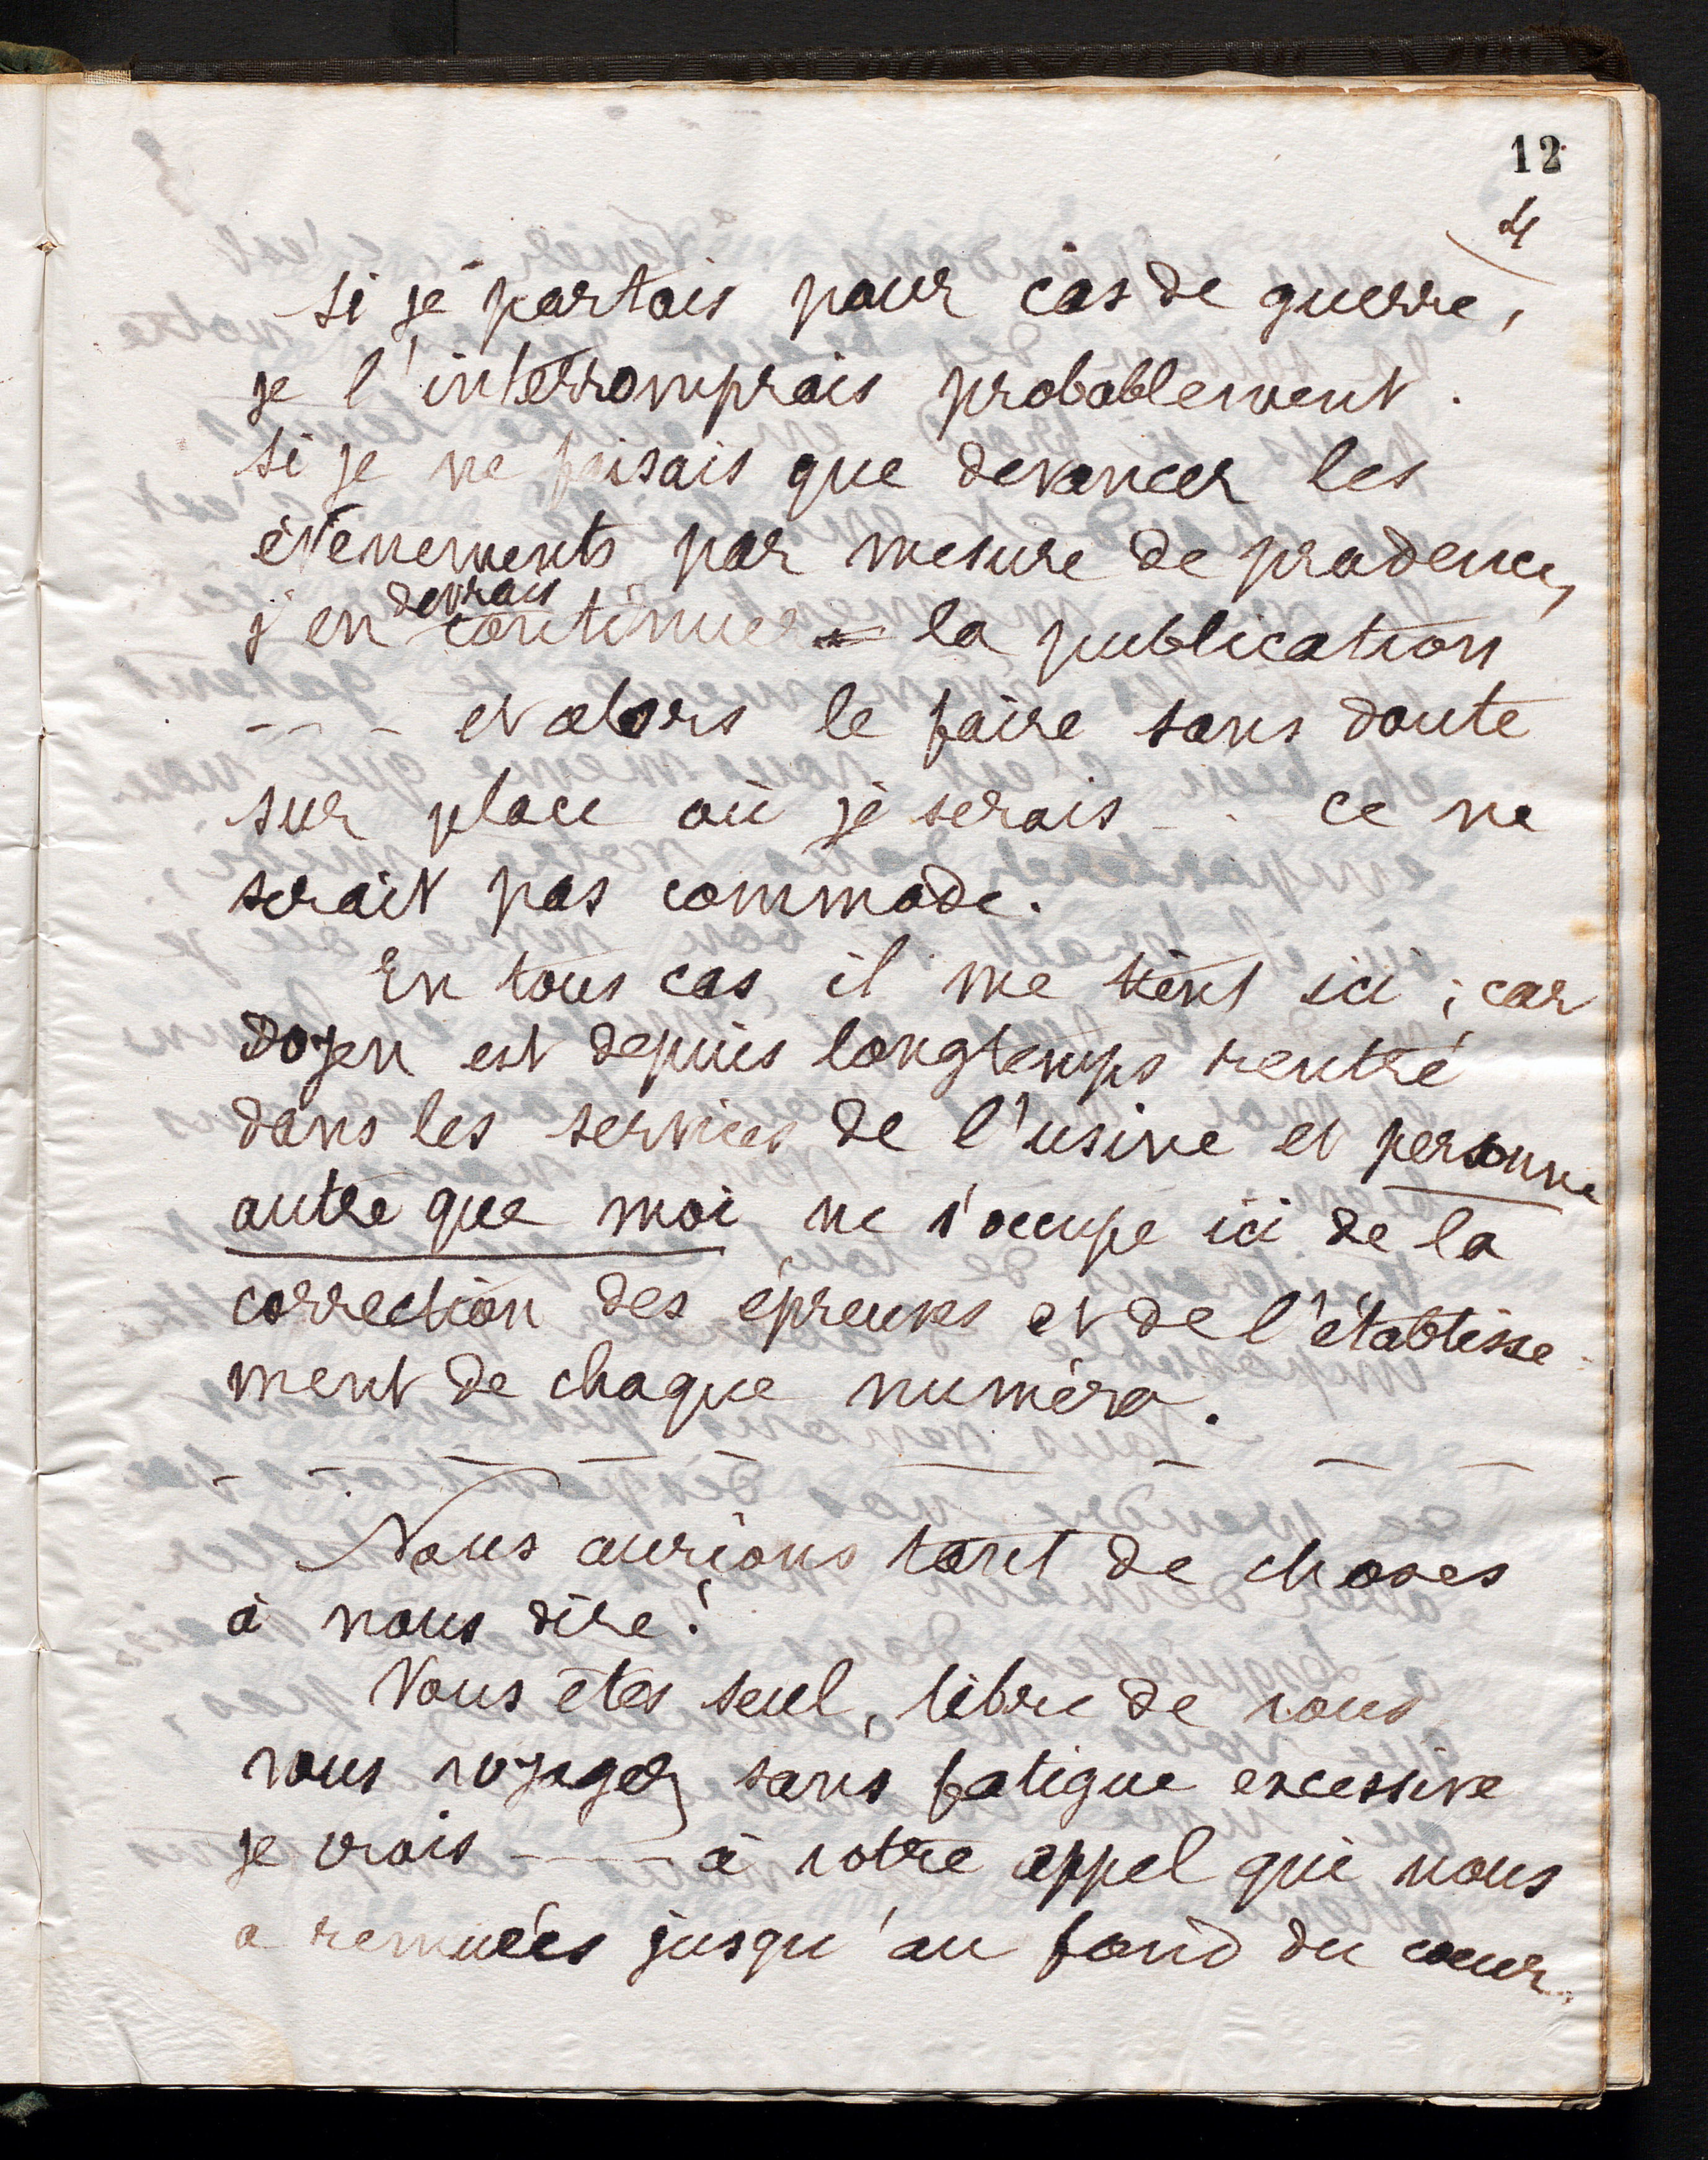 12
4
si je partais pour cas de guerre,
je l'interromprais probablement.
si je ne faisais que devancer les
évènements par mesure de prudence,
devrais
j'en continuer la publication
- - - et alors le faire sans doute
sur place où je serais - . ce ne
serait pas commode.
En tous cas il me tient ici ; car
Doyen est depuis longtemps rentré
dans les services de l'usine et personne
autre que moi ne s'occupe ici de la
correction des épreuves et de l'établisse-
ment de chaque numéro.
Nous aurions tant de choses
à nous dire !
Vous êtes seul, libre de vous
vous voyagez sans fatigue excessive
je vrais — à votre appel qui nous
a remuées jusqu'au fond du coeur.